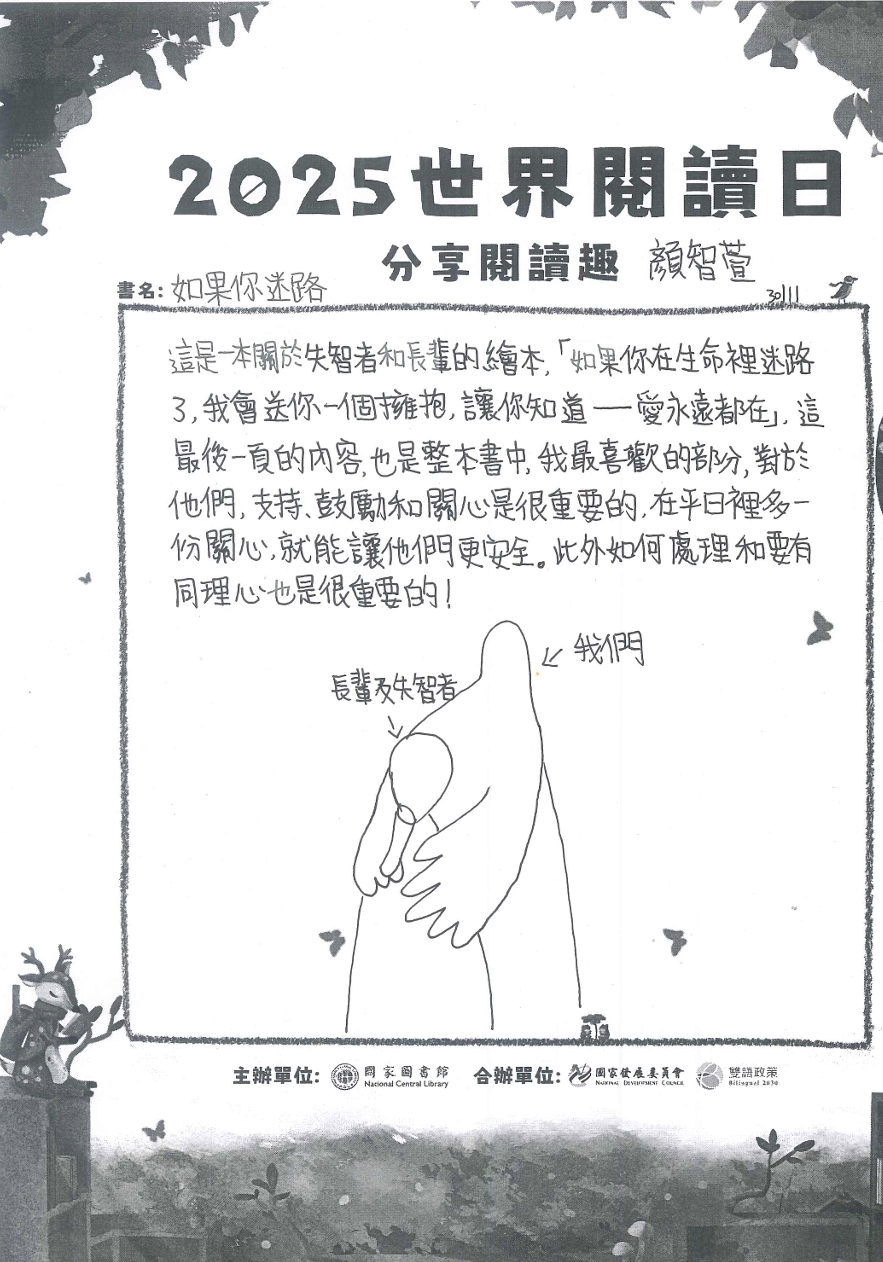 2025世界閱讀日
分享閱讀趣 顏智萱
書名: 如果你迷路
30111
這是一本關於失智者和長輩的繪本,「如果你在生命裡迷路
了,我會送你一個擁抱,讓你知道——愛永遠都在」,這
最後一頁的內容,也是整本書中,我最喜歡的部分,對於
他們,支持、鼓勵和關心是很重要的,在平日裡多一
份關心,就能讓他們更安全。此外如何處理和要有
同理心也是很重要的!
我們
長輩及失智者
主辦單位: 國家圖書館 National Central Library 合辦單位: 國家發展委員會 National Development Council 雙語政策 Bilingual 2030